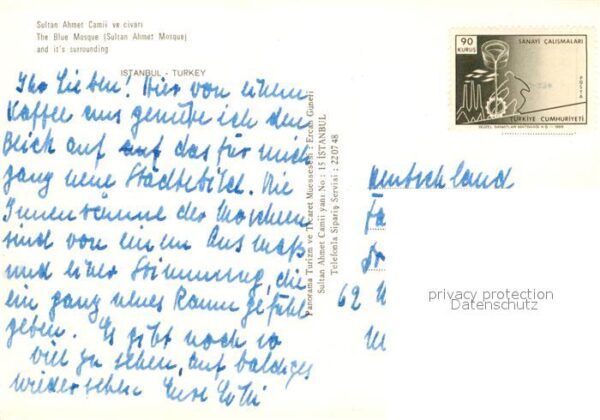 Sultan Ahmet Camii ve civarı
The Blue Mosque (Sultan Ahmet Mosque)
and it's surrounding
ISTANBUL - TURKEY
Ihr Lieben! Hier von einem
Kaffee aus genieße ich den
Blick auf das für mich
ganz neue Städtebild. Die
Innenräume der Moscheen
sind von einem Ausmaß
und einer Stimmung, die
ein ganz neues Raumgefühl
geben. Es gibt noch so
viel zu sehen, auf baldiges
Wiedersehen Eure
Panorama Turizm ve Ticaret Müessesesi : Ercan Güneri
Sultan Ahmet Camii yanı No : 15 İSTANBUL
Telefonla Sipariş Servisi : 22 07 48
90
KURUŞ
SANAYİ ÇALIŞMALARI
POSTA
TÜRKİYE CUMHURİYETİ
GÜZEL SANATLAR MATBAASI A.Ş. - 1969
Deutschland
62
privacy protection
Datenschutz